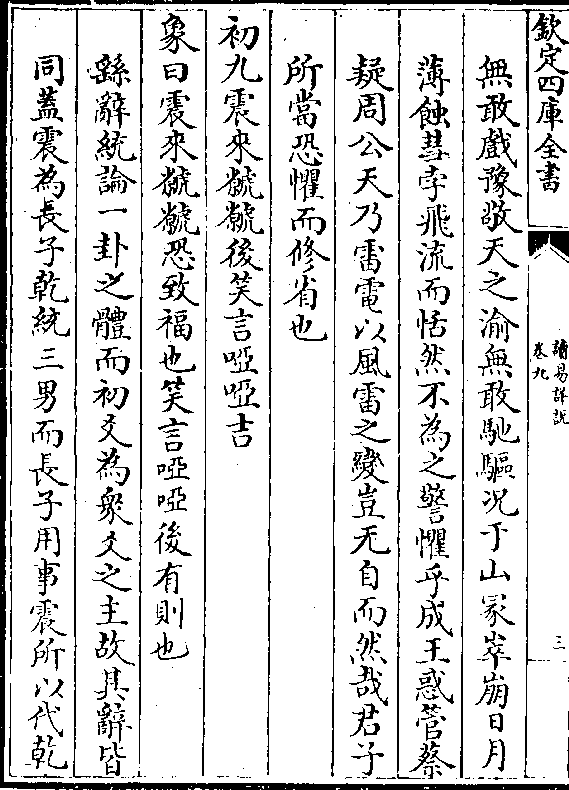 欽定四庫全書
讀易詳說
卷九
三
無敢戲豫敬天之渝無敢馳驅况于山冢崒崩日月
薄蝕彗孛飛流而恬然不為之警懼乎成王惑管蔡
疑周公天乃雷電以風雷之變豈无自而然哉君子
所當恐懼而修省也
初九震來虩虩後笑言啞啞吉
象曰震來虩虩恐致福也笑言啞啞後有則也
繇辭統論一卦之體而初爻為衆爻之主故其辭皆
同蓋震為長子乾統三男而長子用事震所以代乾